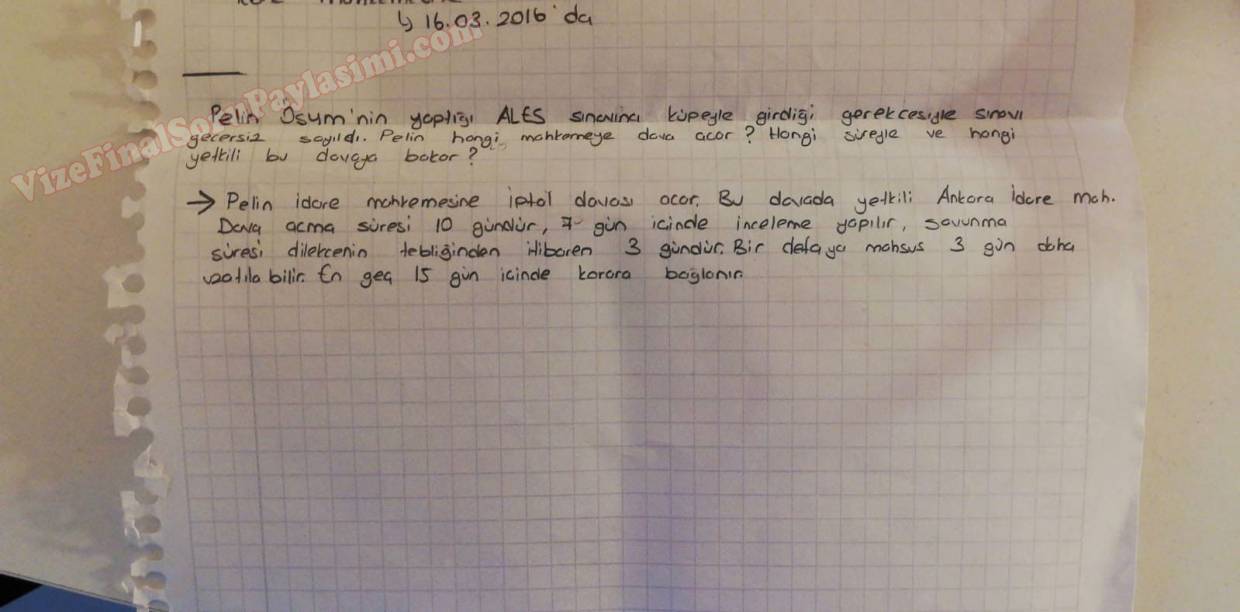 ↳ 16.03.2016'da
VizeFinalSoruPaylasimi.com
Pelin Ösym'nin yaptığı ALES sınavına küpeyle girdiği gerekcesiyle sınavı
gecersiz sayıldı. Pelin hangi mahkemeye dava acar? Hangi süreyle ve hangi
yetkili bu davaya bakar?
→ Pelin idare mahkemesine iptal davası acar. Bu davada yetkili Ankara İdare mah.
Dava acma süresi 10 gündür, 7 gün icinde inceleme yapılır, savunma
süresi dilekcenin tebliğinden itibaren 3 gündür. Bir defaya mahsus 3 gün daha
uzatıla bilir. En geç 15 gün icinde karara bağlanır.